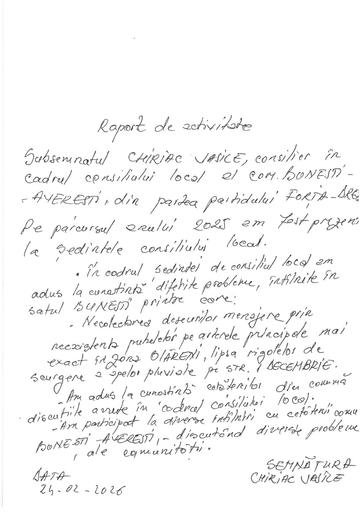 Raport de activitate
Subsemnatul CHIRIAC VASILE, consilier în
cadrul consiliului local al com. BUNEȘTI-
-AVEREȘTI, din partea partidului FORȚA-DRE
Pe parcursul anului 2025 am fost prezen
la ședintele consiliului local.
• În cadrul ședintei de consiliul local am
adus la cunostință diferite probleme, întîlnite în
satul BUNEȘTI printre care:
- Necolectarea deseurilor menajere prin
neexistența pubelelor pe arterele principale mai
exact în zona OLĂREȘTI, lipsa rigolelor de
scurgere a apelor pluviale pe str. 1 DECEMBRIE.
- Am adus la cunostință cetătenilor din comună
discuțiile avute în cadrul consiliului local.
- Am participat la diverse întîlniri cu cetătenii comu
BUNEȘTI-AVEREȘTI, - discutând diverse probleme
ale comunității.
SEMNĂTURA
CHIRIAC VASILE
DATA
24-02-2026